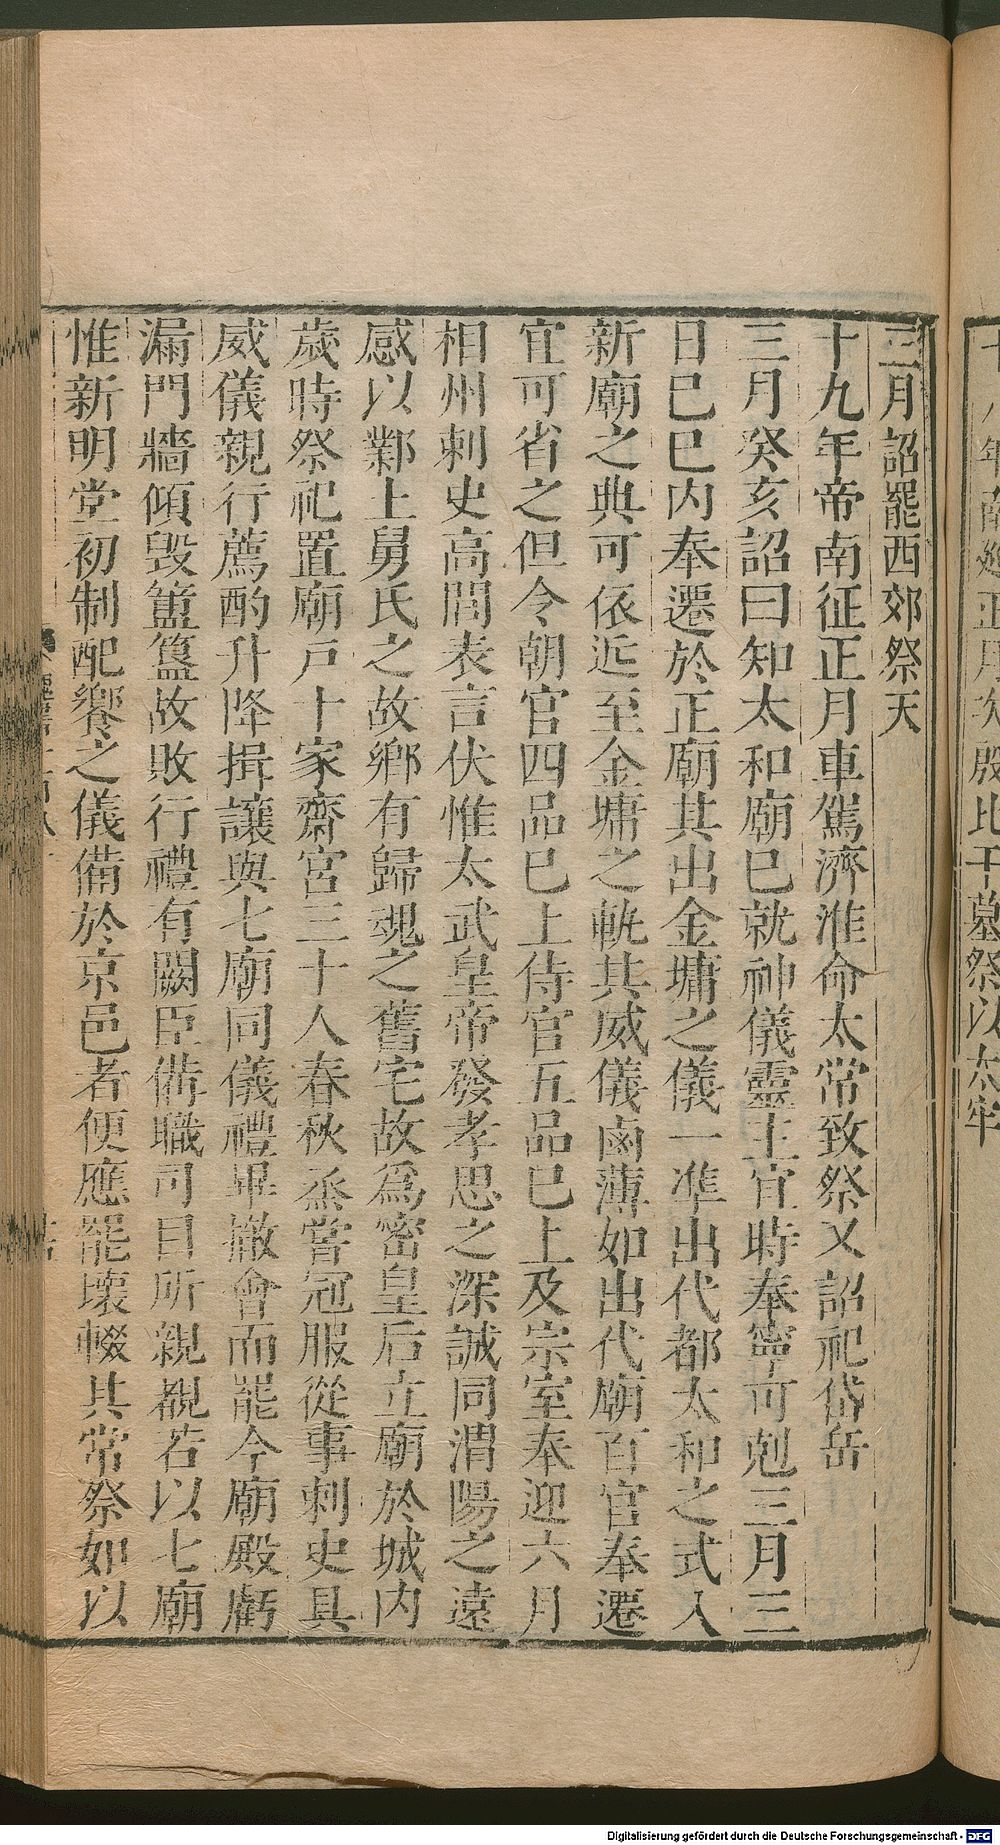 十八年南巡正月次殷比干墓祭以太牢
三月詔罷西郊祭天
十九年帝南征正月車駕濟淮命太常致祭又詔祀岱岳
三月癸亥詔曰知太和廟巳就神儀靈主宜時奉寧可剋三月三
日巳巳内奉遷於正廟其出金墉之儀一準出代都太和之式入
新廟之典可依近至金墉之軌其威儀鹵薄如出代廟百官奉遷
宜可省之但令朝官四品巳上侍官五品巳上及宗室奉迎六月
相州刺史高閭表言伏惟太武皇帝發孝思之深誠同渭陽之遠
感以鄴土舅氏之故鄉有歸魂之舊宅故爲密皇后立廟於城内
歲時祭祀置廟戶十家齋宮三十人春秋烝嘗冠服從事刺史具
威儀親行薦酌升降揖讓與七廟同儀禮畢撤會而罷今廟殿虧
漏門牆傾毀簠簋故敗行禮有闕臣備職司目所親覩若以七廟
惟新明堂初制配饗之儀備於京邑者便應罷壞輟其常祭如以
Digitalisierung gefördert durch die Deutsche Forschungsgemeinschaft - DFG